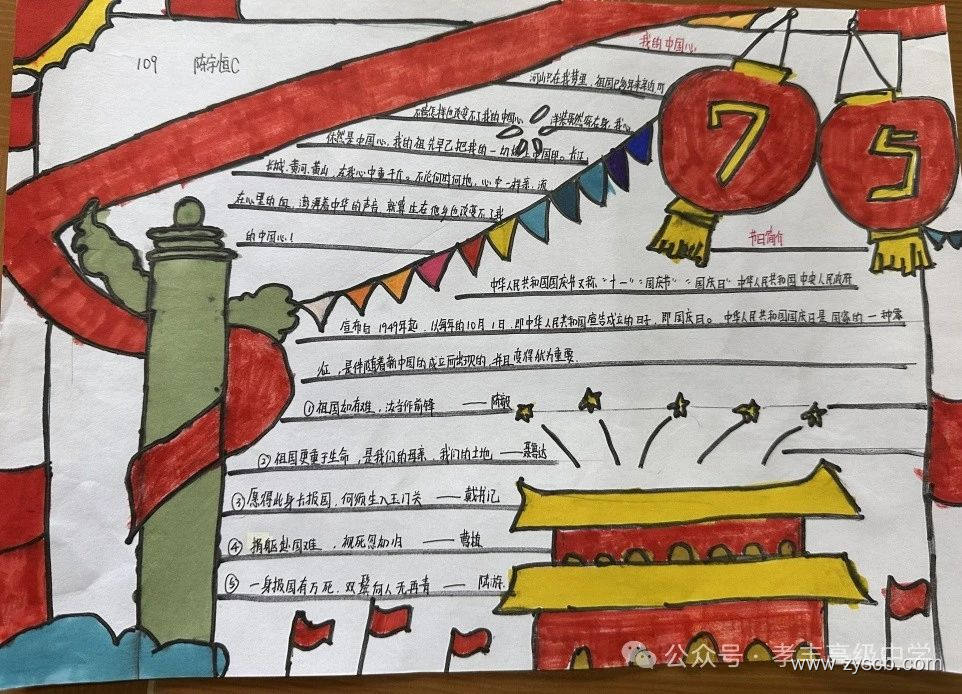 109 陈宇恒C
我的中国心
河山只在我梦里，祖国已多年未亲近，可
不管怎样也改变不了我的中国心。洋装虽然穿在身，我心
依然是中国心，我的祖先早已把我的一切烙上中国印。长江、
长城、黄河、黄山，在我心中重千斤。不论何时何地，心中一样亲，流
在心里的血，澎湃着中华的声音，就算生在他乡也改变不了我
的中国心！
75
节日简介
中华人民共和国国庆节又称"十一"、"国庆节"、"国庆日"中华人民共和国中央人民政府
宣布自1949年起，以每年的10月1日，即中华人民共和国宣告成立的日子，即国庆日。中华人民共和国国庆日是国家的一种象
征，是伴随着新中国的成立而出现的，并且变得尤为重要
①祖国如有难，汝当作前锋 ——陈毅
②祖国更重于生命，是我们的母亲，我们的土地 ——聂鲁达
③愿得此身长报国，何须生入玉门关 ——戴书记
④捐躯赴国难，视死忽如归 ——曹植
⑤一身报国有万死，双鬓向人无再青 —— 陆游
公众号·孝丰高级中学
www.zyscb.com